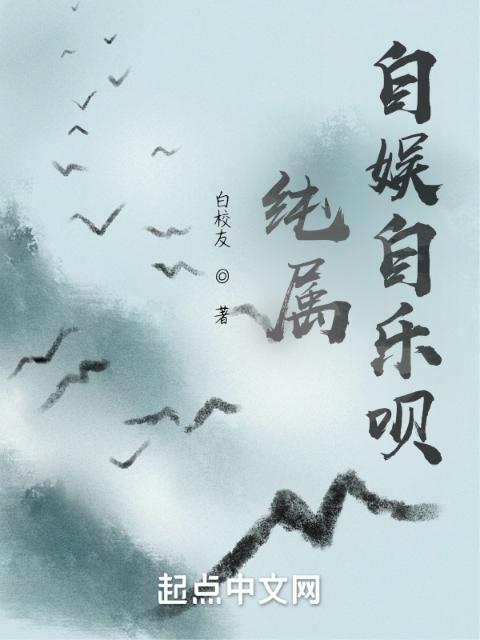 自娱自乐呗
纯属
白校友 ◎ 著
起点中文网